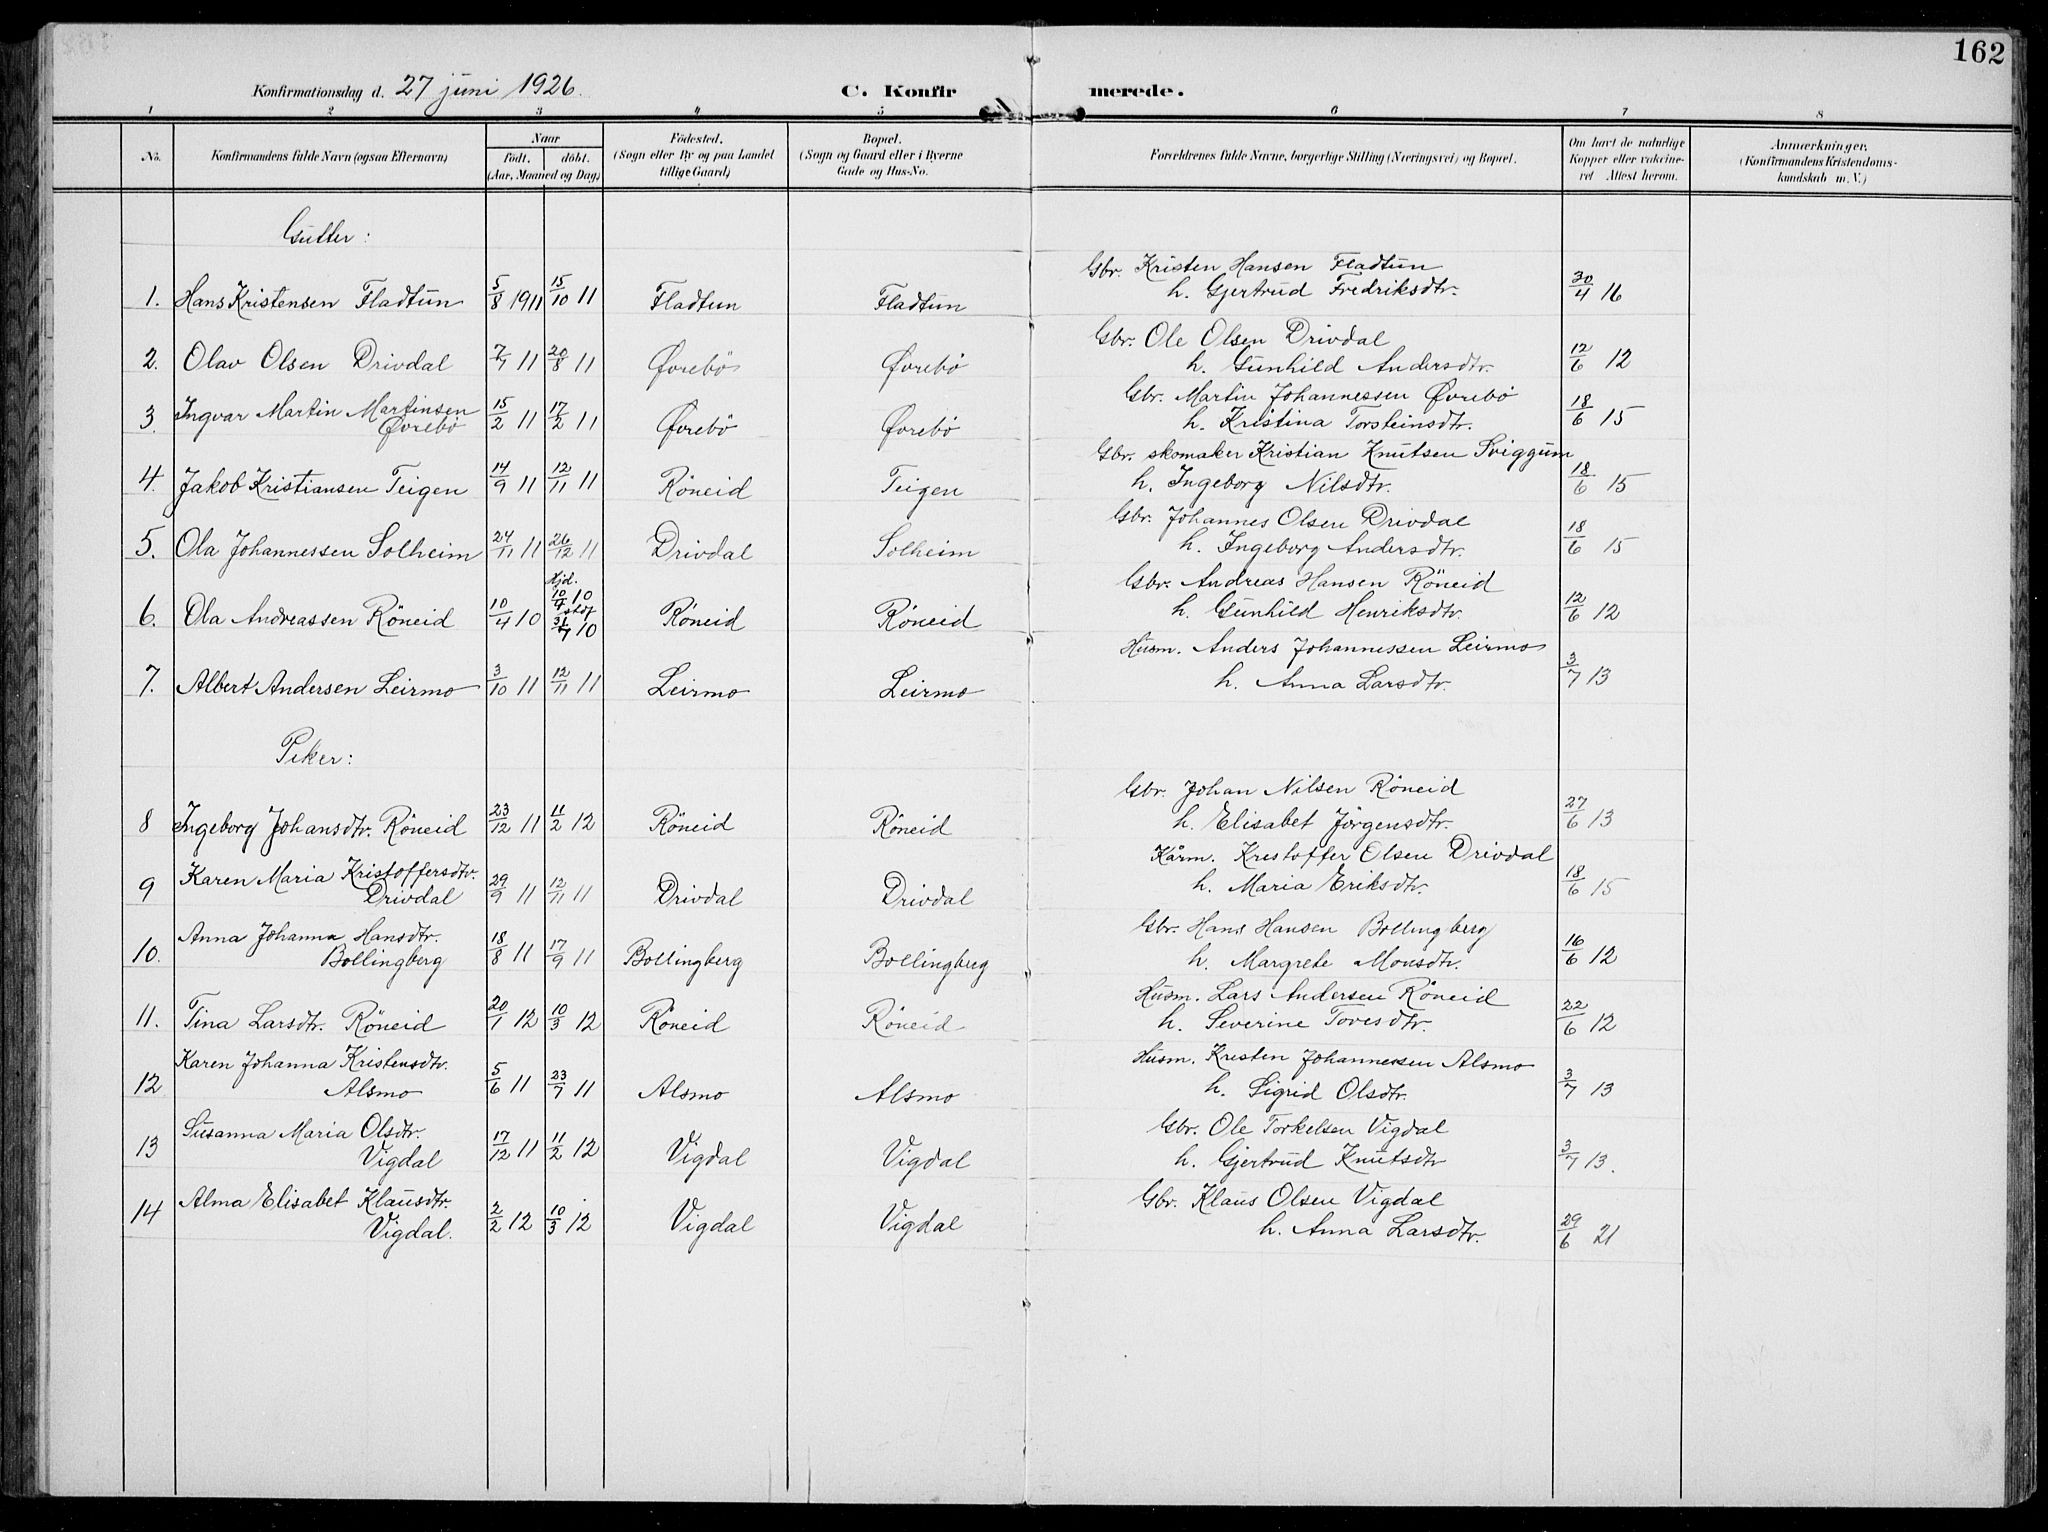 162
Konfirmationsdag d. 27 juni 1926. C. Konfirmerede.
1 2 3 4 5 6 7 8
No. Konfirmandens fulde Navn (ogsaa Efternavn) Naar født. døbt. (Aar, Maaned og Dag) Födested. (Sogn eller By og paa Landet tillige Gaard) Bopæl. (Sogn og Gaard eller i Byerne Gade og Hus-No. Forældrenes fulde Navne, borgerlige Stilling (Næringsvei) og Bopæl. Om havt de naturlige Kopper eller vakcineret Attest herom. Anmærkninger. (Konfirmandens Kristendomskundskab m. V.)
Gutter:
1. Hans Kristensen Fladtun 5/8 1911 15/10 11 Fladtun Fladtun Gbr. Kristen Hansen Fladtun
h. Gjertrud Fredriksdtr. 30/4 16
2. Olav Olsen Drivdal 7/7 11 20/8 11 Øvrebö Øvrebö Gbr. Ole Olsen Drivdal
h. Gunhild Andersdtr. 12/6 12
3. Ingvar Martin Martinsen
Øvrebö 15/2 11 17/2 11 Øvrebö Øvrebö Gbr. Martin Johannessen Øvrebö
h. Kristina Torsteinsdtr. 18/6 15
4. Jakob Kristiansen Teigen 14/9 11 12/11 11 Röneid Teigen Gbr. skomaker Kristian Knutsen Sviggum
h. Ingeborg Nilsdtr. 18/6 15
5. Ola Johannessen Solheim 24/11 11 26/12 11 Drivdal Solheim Gbr. Johannes Olsen Drivdal
h. Ingeborg Andersdtr. 18/6 15
6. Ola Andreassen Röneid 10/4 10 Hjd. 10/4 10 stdf 31/7 10 Röneid Röneid Gbr. Andreas Hansen Röneid
h. Gunhild Henriksdtr. 12/6 12
7. Albert Andersen Leirmo 3/10 11 12/11 11 Leirmo Leirmo Husm. Anders Johannessen Leirmo
h. Anna Larsdtr. 3/7 13
Piker:
8 Ingeborg Johansdtr. Röneid 23/12 11 11/2 12 Röneid Röneid Gbr. Johan Nilsen Röneid
h. Elisabet Jörgensdtr. 27/6 13
9 Karen Maria Kristoffersdtr.
Drivdal 29/9 11 12/11 11 Drivdal Drivdal Kårm. Krestoffer Olsen Drivdal
h. Maria Eriksdtr. 18/6 15
10. Anna Johanna Hansdtr.
Bollingberg 18/8 11 17/9 11 Bollingberg Bollingberg Gbr. Hans Hansen Bollingberg
h. Margrete Monsdtr. 16/6 12
11. Tina Larsdtr. Röneid 20/1 12 10/3 12 Röneid Röneid Husm. Lars Andersen Röneid
h. Severine Tovesdtr. 22/6 12
12 Karen Johanna Kristensdtr.
Alsmo 5/6 11 23/7 11 Alsmo Alsmo Husm. Kresten Johannessen Alsmo
h. Sigrid Olsdtr. 3/7 13
13 Susanna Maria Olsdtr.
Vigdal 17/12 11 11/2 12 Vigdal Vigdal Gbr. Ole Torkelsen Vigdal
h. Gjertrud Knutsdtr 3/7 13.
14 Alma Elisabet Klausdtr.
Vigdal. 2/2 12 10/3 12 Vigdal Vigdal Gbr. Klaus Olsen Vigdal
h. Anna Larsdtr. 29/6 21